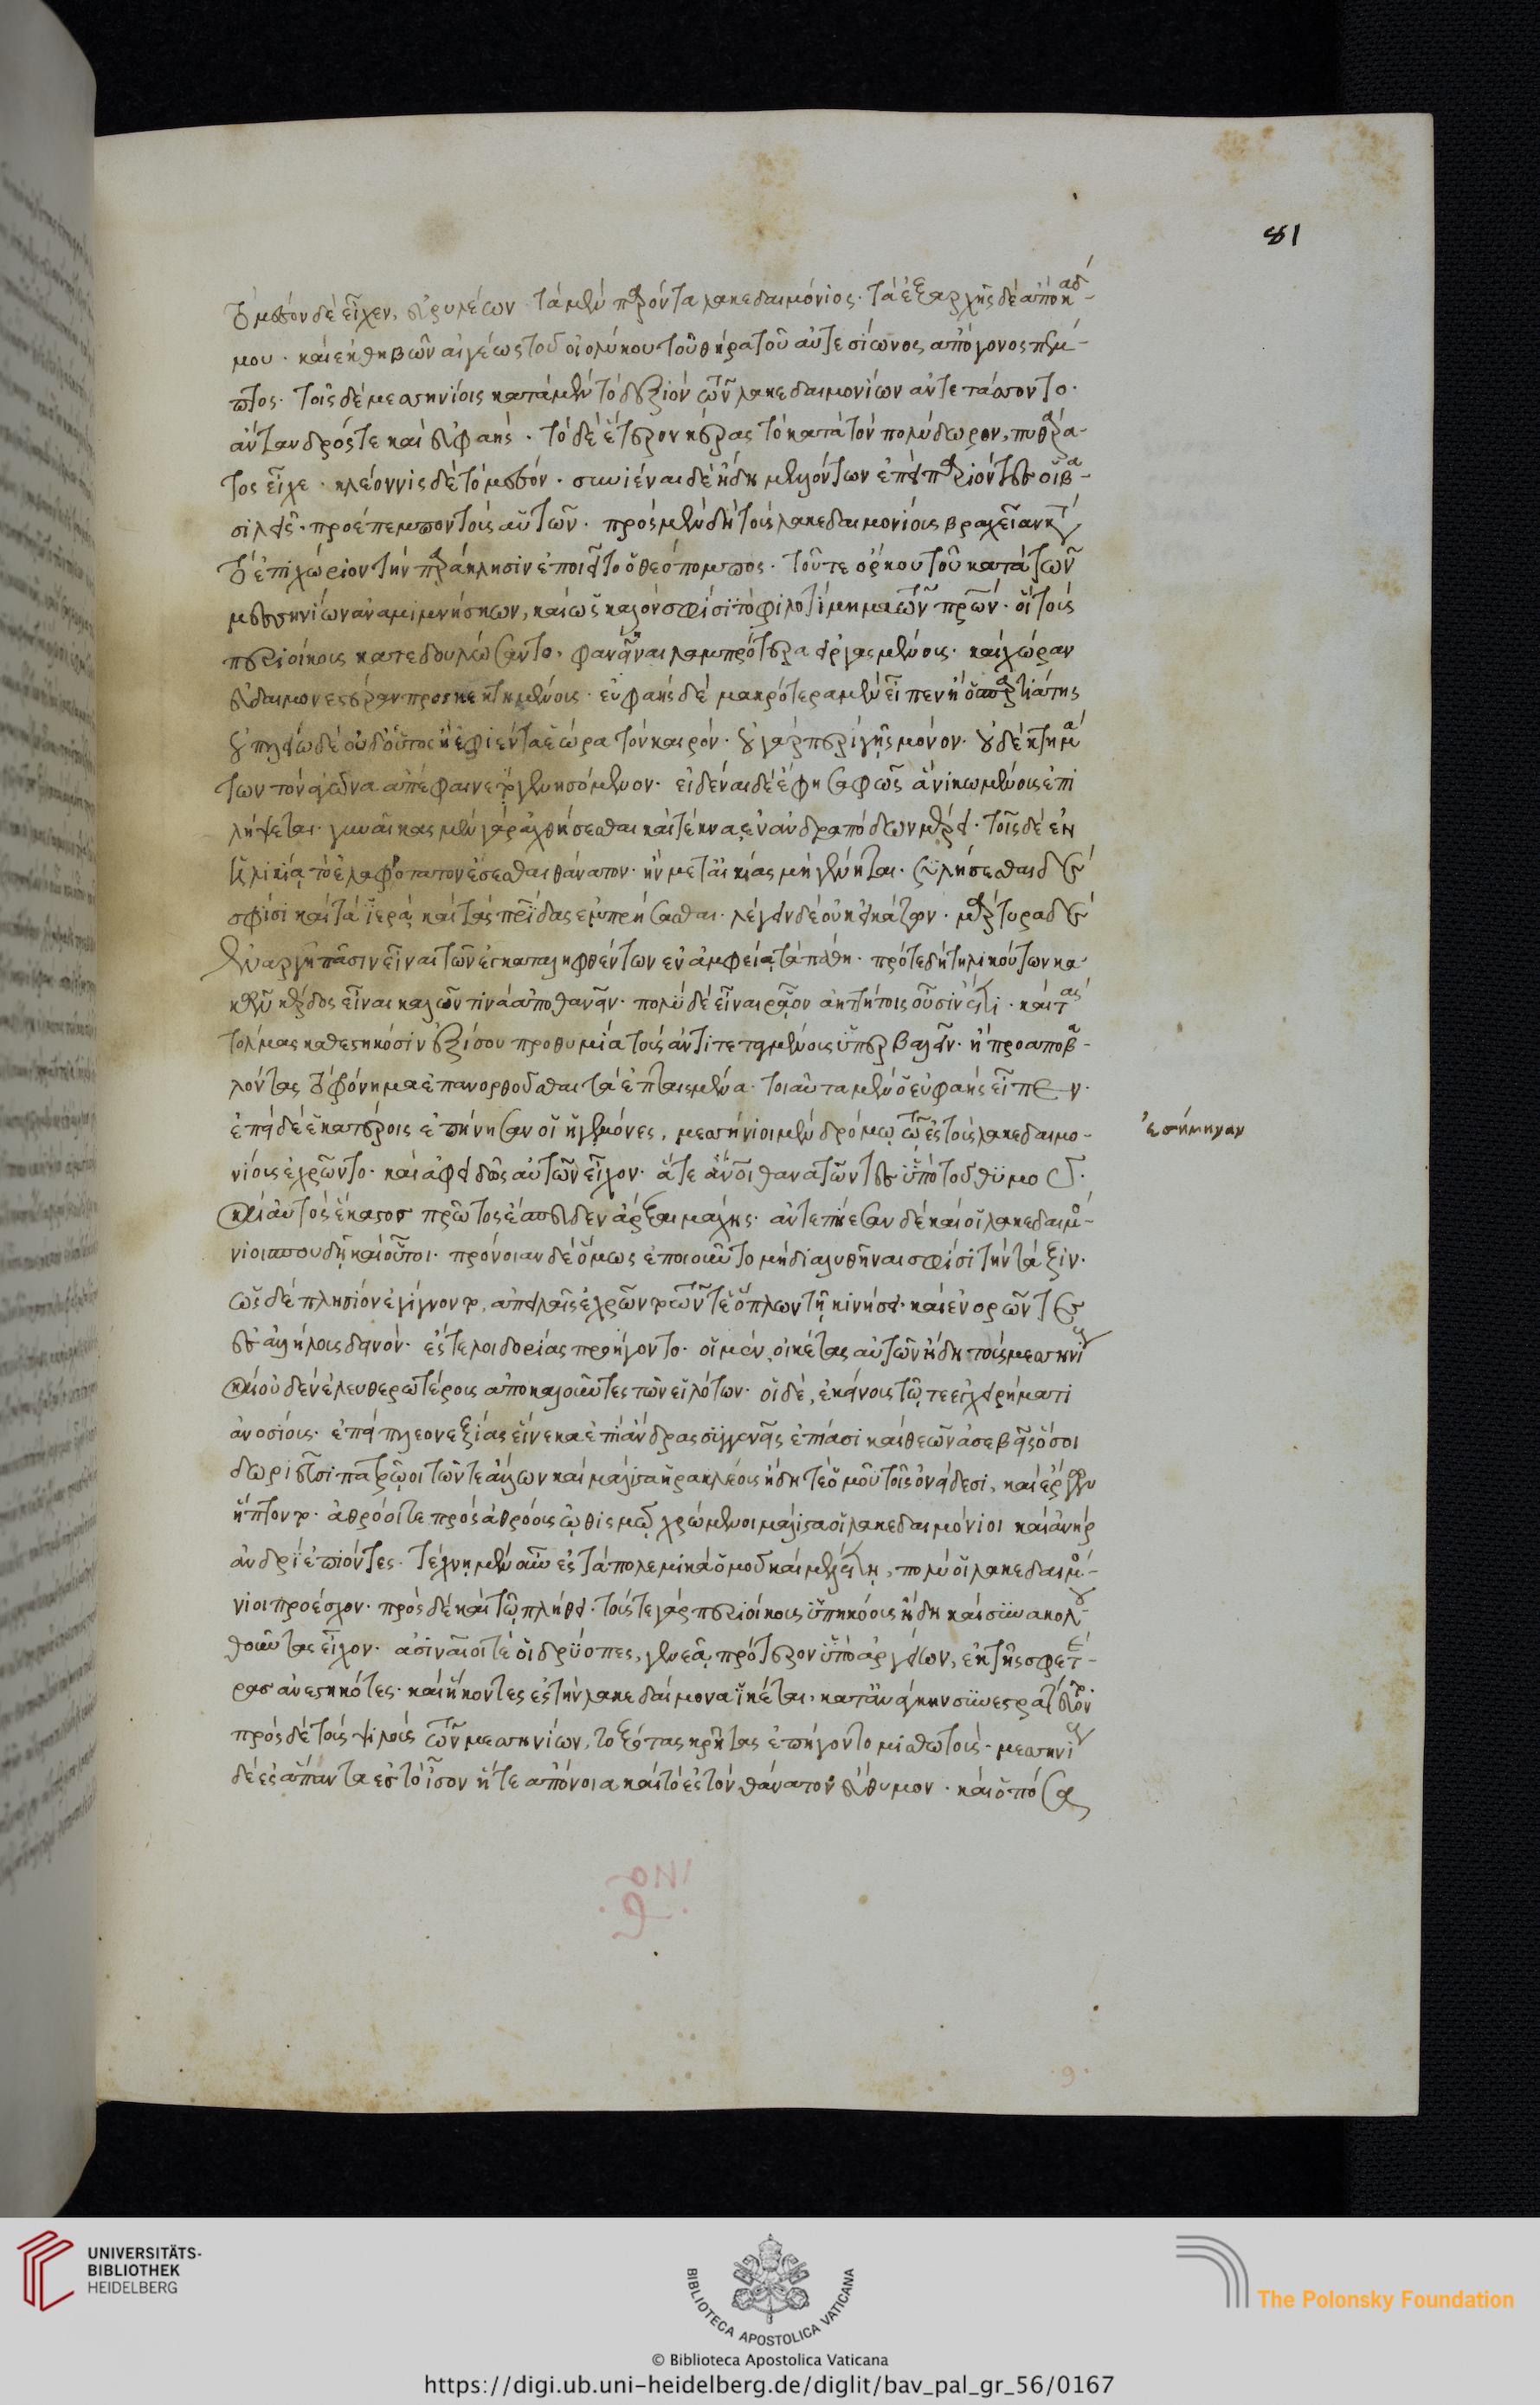 81
τὸ μέσον δὲ εἶχεν, εὐρυλέων τὰ μὲν παρόντα λακεδαιμόνιος· τὰ ἐξ αρχῆς δὲ ἀπὸ καδ-
μου· καὶ ἐκ θηβῶν αἰγέως τοῦ οἰολύκου τοῦ θήρα τοῦ αὐτεσίωνος ἀπόγονος πέμ-
πτος· τοῖς δὲ μεσηνίοις κατὰ μὲν τὸ δεξιὸν τῶν λακεδαιμονίων ἀντετάσσοντο·
ἄντανδρός τε καὶ εὐφαής· τὸ δὲ ἕτερον κέρας τὸ κατὰ τὸν πολύδωρον, πυθάρα-
τος εἶχε· κλέοννις δὲ τὸ μέσον· συνιέναι δὲ ἤδη μελλόντων ἐπεὶ παριόντες οἱ βα-
σιλεῖς· προέπεμπον τοὺς αὑτῶν· πρὸς μὲν δὴ τοὺς λακεδαιμονίους βραχεῖαν κατὰ
τὸ ἐπιχώριον τὴν παράκλησιν ἐποιεῖτο ὁ θεόπομπος· τοῦ τε ὅρκου τοῦ κατὰ τῶν
μεσσηνίων ἀναμιμνήσκων, καὶ ὡς καλόν σφισι τὸ φιλοτίμημα τῶν πατέρων· οἳ τοὺς
περιοίκους κατεδουλώσαντο, φανῆναι λαμπρότερα εἰργασμένους· καὶ χώραν
εὐδαιμονεστέραν προσκεκτημένους· εὐφαὴς δὲ μακρότερα μὲν εἶπεν ἢ ὁ σπαρτιάτης
οὐ πλείω δὲ οὐδ' οὗτος ἢ ἐφιέντα ἑώρα τὸν καιρόν· οὐ γὰρ περὶ γῆς μόνον· οὐδὲ κτημά
των τὸν ἀγῶνα ἀπέφαινε γενησόμενον· εἰδέναι δὲ ἔφη σαφῶς ἃ νικωμένους ἐπι
λήψεται· γυναῖκας μὲν γὰρ ἀχθήσεσθαι καὶ τέκνα ἐν ἀνδραπόδων μέρει· τοῖς δὲ ἐν
ἡλικίᾳ τὸ ἐλαφρότατον ἔσεσθαι θάνατον· ἢν μετ' αἰκίας μὴ γένηται· συλήσεσθαι δέ
σφισι καὶ τὰ ἱερά, καὶ τὰς πατρίδας ἐμπρήσασθαι· λέγειν δὲ οὐκ εἰκάζων· μάρτυρα δέ
ἐναργῆ πᾶσιν εἶναι τῶν ἐγκαταληφθέντων ἐν ἀμφείᾳ τὰ πάθη· πρό τε δὴ τηλικούτων κα
κῶν κέρδος εἶναι καλῶς τινὰ ἀποθανεῖν· πολὺ δὲ εἶναι ῥᾷον ἀηττήτοις οὖσιν ἔτι· καὶ τὰς
τόλμας καθεστηκόσιν ἐξ ἴσου προθυμίᾳ τοὺς ἀντιτεταγμένους ὑπερβαλεῖν· ἢ προαποβα-
λόντας τὸ φρόνημα ἐπανορθοῦσθαι τὰ ἐπταισμένα· τοιαῦτα μὲν ὁ εὐφαὴς εἶπεν·
ἐπεὶ δὲ ἑκατέροις ἐπήνησαν οἱ ἡγεμόνες, μεσήνιοι μὲν δρόμῳ τῷ ἐς τοὺς λακεδαιμο-
ἐσήμηναν
νίους ἐχρῶντο· καὶ ἀφειδῶς αὑτῶν εἶχον· ἅτε ἄνθρωποι θανατῶντες ὑπὸ τοῦ θυμοῦ·
καὶ αὐτὸς ἕκαστος πρῶτος ἔσπευδεν ἄρξαι μάχης· ἀντεπῄεσαν δὲ καὶ οἱ λακεδαιμό-
νιοι σπουδῇ καὶ οὗτοι· πρόνοιαν δὲ ὅμως ἐποιοῦντο μὴ διαλυθῆναι σφίσι τὴν τάξιν·
ὡς δὲ πλησίον ἐγίγνοντο, ἀπειλαῖς ἐχρῶντο τῶν τε ὅπλων τῇ κινήσει· καὶ ἐνορῶντες
ἐς ἀλλήλους δεινόν· ἔς τε λοιδορίας προήγοντο· οἱ μὲν, οἰκέτας αὑτῶν ἤδη τοὺς μεσηνίους
καὶ οὐδὲν ἐλευθερωτέρους ἀποκαλοῦντες τῶν εἱλότων· οἱ δὲ, ἐκείνους τῷ τε ἐγχειρήματι
ἀνοσίους· ἐπεὶ πλεονεξίας εἵνεκα ἐπὶ ἄνδρας συγγενεῖς ἐπίασι καὶ θεῶν ἀσεβεῖς ὅσοι
δωριεῦσι πατρῷοι τῶν τε ἄλλων καὶ μάλιστα ἡρακλέους ἤδη τε ὁμοῦ τοῖς ὀνείδεσι, καὶ ἔργων
ἥπτοντο· ἀθρόοι τε πρὸς ἀθρόους ὠθισμῷ χρώμενοι μάλιστα οἱ λακεδαιμόνιοι καὶ ἀνὴρ
ἀνδρὶ ἐπιόντες· τέχνῃ μὲν οὖν ἐς τὰ πολεμικὰ ὁμοῦ καὶ μελέτῃ, πολὺ οἱ λακεδαιμό-
νιοι προέσχον· πρὸς δὲ καὶ τῷ πλήθει· τούς τε γὰρ περιοίκους ὑπηκόους ἤδη καὶ συνακολου-
θοῦντας εἶχον· ἀσιναῖοί τε οἱ δρύοπες, γενεᾷ πρότερον ὑπὸ ἀργείων, ἐκ τῆς σφετέ-
ρας ἀνεστηκότες· καὶ ἥκοντες ἐς τὴν λακεδαίμονα ἱκέται, κατ' ἀνάγκην συνεστρατεύοντο
πρὸς δὲ τοὺς ψιλοὺς τῶν μεσηνίων, τοξότας κρῆτας ἐπήγοντο μισθωτούς· μεσηνίους
δὲ ἐς ἅπαντα ἐς τὸ ἴσον ἥ τε ἀπόνοια καὶ τὸ ἐς τὸν θάνατον εὔθυμον· καὶ ὁπόσα
UNIVERSITÄTS-
BIBLIOTHEK
HEIDELBERG
BIBLIOTECA APOSTOLICA VATICANA
The Polonsky Foundation
© Biblioteca Apostolica Vaticana
https://digi.ub.uni-heidelberg.de/diglit/bav_pal_gr_56/0167